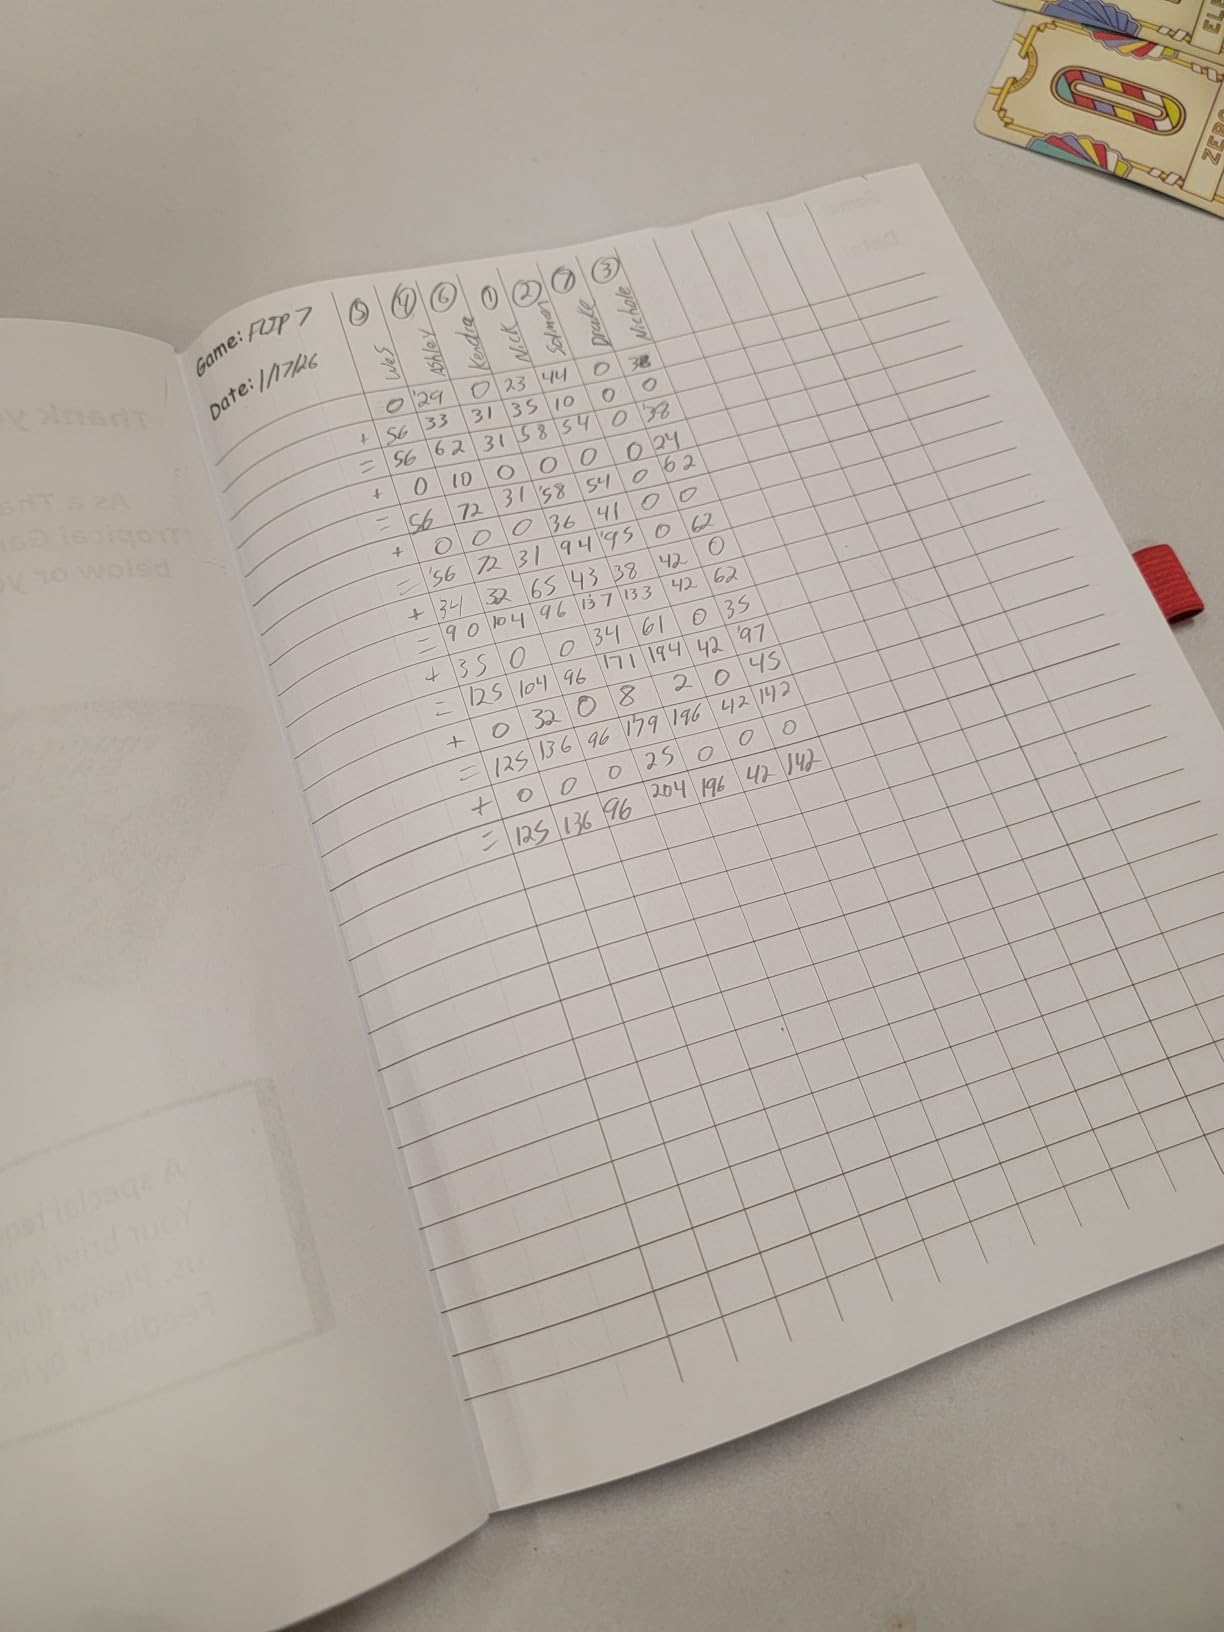 ELE
ZERO
Game: FLIP 7
Date: 1/17/26
5 4 6 1 2 7 3
Wes Ashley Kendra Nick Salman Drake Nichole
0 29 0 23 44 0 38
+ 56 33 31 35 10 0 0
= 56 62 31 58 54 0 38
+ 0 10 0 0 0 0 24
= 56 72 31 58 54 0 62
+ 0 0 0 36 41 0 0
= 56 72 31 94 95 0 62
+ 34 32 65 43 38 42 0
= 90 104 96 137 133 42 62
+ 35 0 0 34 61 0 35
= 125 104 96 171 194 42 97
+ 0 32 0 8 2 0 45
= 125 136 96 179 196 42 142
+ 0 0 0 25 0 0 0
= 125 136 96 204 196 42 142